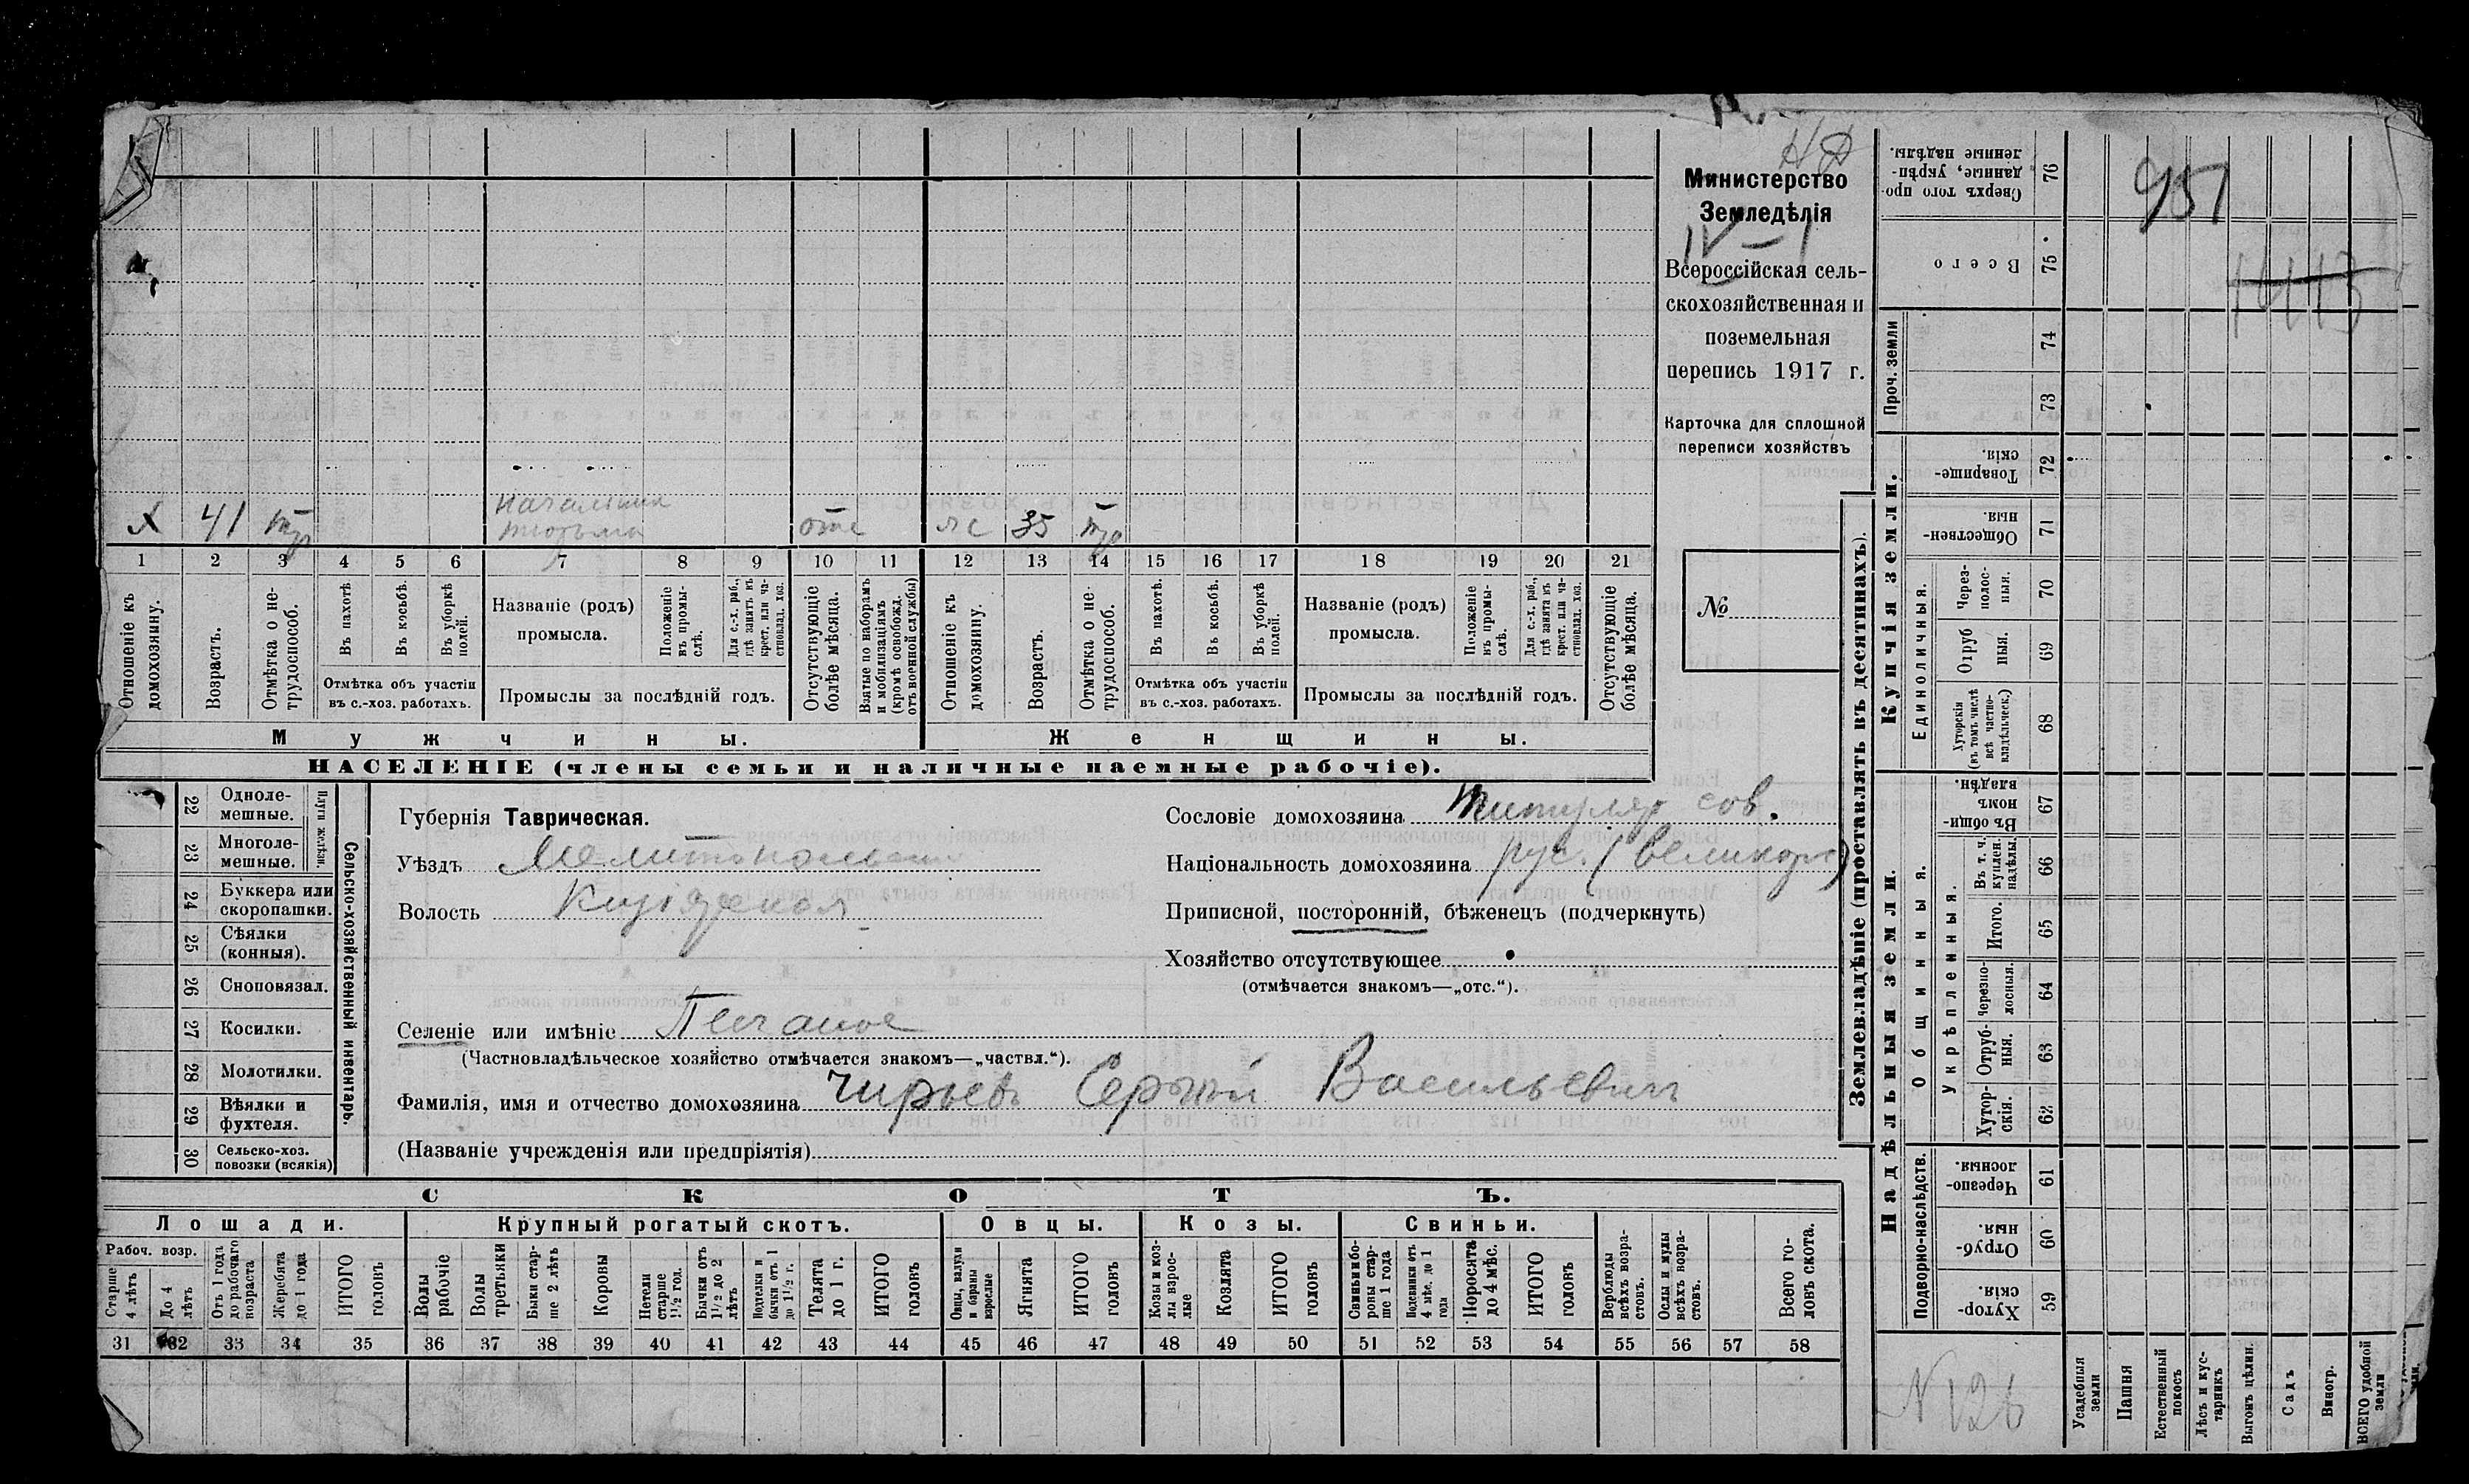 НД
Министерство
Земледѣлія
IV – 1
Всероссійская сель-
скохозяйственная и
поземельная
перепись 1917 г.
Карточка для сплошной
переписи хозяйствъ
№
х 41 тр начальник тюрьмы отс ж 35 тр
1 2 3 4 5 6 7 8 9 10 11 12 13 14 15 16 17 18 19 20 21
Отношеніе къ домохозяину.
Возрастъ.
Отмѣтка о не-трудоспособ.
Въ пахотѣ.
Въ косьбѣ.
Въ уборкѣ полей.
Отмѣтка объ участіи
въ с.-хоз. работахъ.
Названіе (родъ)
промысла.
Положеніе въ промы-слѣ.
Для с.-х. раб., гдѣ занятъ къ крест. или ча-стновлад. хоз.
Промыслы за послѣдній годъ.
Отсутствующіе болѣе мѣсяца.
Взятые по наборамъ и мобилизаціямъ (кромѣ освобожд. отъ военной службы)
Отношеніе къ домохозяину.
Возрастъ.
Отмѣтка о не-трудоспособ.
Въ пахотѣ.
Въ косьбѣ.
Въ уборкѣ полей.
Отмѣтка объ участіи
въ с.-хоз. работахъ.
Названіе (родъ)
промысла.
Положеніе въ промы-слѣ.
Для с.-х. раб., гдѣ занята къ крест. или ча-стновлад. хоз.
Промыслы за послѣдній годъ.
Отсутствующіе болѣе мѣсяца.
Мужчины. Женщины.
НАСЕЛЕНІЕ (члены семьи и наличные наемные рабочіе).
22 Одноле-мешные.
23 Многоле-мешные.
Плуги желѣзн.
24 Буккера или скоропашки.
25 Сѣялки (конныя).
26 Сноповязал.
27 Косилки.
28 Молотилки.
29 Вѣялки и фухтеля.
30 Сельско-хоз. повозки (всякія)
Сельско-хозяйственный инвентарь.
Губернія Таврическая.
Уѣздъ Мелитопольский
Волость Кизіярская
Селеніе или имѣніе Песчаное
(Частновладѣльческое хозяйство отмѣчается знакомъ—„частвл.“).
Фамилія, имя и отчество домохозяина Чирьевъ Сергѣй Васильевич
(Названіе учрежденія или предпріятія)
Сословіе домохозяина титуляр сов.
Національность домохозяина рус. (великор)
Приписной, посторонній, бѣженецъ (подчеркнуть)
Хозяйство отсутствующее
(отмѣчается знакомъ—„отс.“).
СКОТЪ.
Лошади. Крупный рогатый скотъ. Овцы. Козы. Свиньи.
Рабоч. возр.
Старше 4 лѣтъ
До 4 лѣтъ
Отъ 1 года до рабочаго возраста
Жеребята до 1 года
ИТОГО головъ
Волы рабочіе
Волы третьяки
Быки стар-ше 2 лѣтъ
Коровы
Нетели старше 1½ год.
Бычки отъ 1½ до 2 лѣтъ
Подтелки и бычки отъ 1 до 1½ г.
Телята до 1 г.
ИТОГО головъ
Овцы, валухи и бараны взрослые
Ягнята
ИТОГО головъ
Козы и коз-лы взрос-лые
Козлята
ИТОГО головъ
Свиньи и бо-ровы стар-ше 1 года
Подсвинки отъ 4 мѣс. до 1 года
Поросята до 4 мѣс.
ИТОГО головъ
Верблюды всѣхъ возра-стовъ.
Ослы и мулы всѣхъ возра-стовъ.
Всего го-ловъ скота.
31 32 33 34 35 36 37 38 39 40 41 42 43 44 45 46 47 48 49 50 51 52 53 54 55 56 57 58
Землевладѣніе (проставлять въ десятинахъ).
Купчія земли.
Надѣльныя земли.
Проч. земли
Единоличныя.
Общинныя.
Укрѣпленныя.
Подворно-наслѣдств.
76 Сверхъ того про-данные, укрѣп-ленные надѣлы.
75 Всего
74
73
72 Товарище-скія.
71 Обществен-ныя.
70 Через-полос-ныя.
69 Отруб ныя.
68 Хуторскія (въ томъ числѣ всѣ частно-владѣльческ.)
67 Въ общи-номъ владѣн.
66 Въ т. ч. куплен. надѣлы.
65 Итого.
64 Черезпо-лосныя.
63 Отруб-ныя.
62 Хутор-скія.
61 Черезпо-лосныя.
60 Отруб-ныя.
59 Хутор-скія.
951
1413
N 126
Усадебныя земли
Пашня
Естественный покосъ
Лѣсъ и кус-тарникъ
Выгонъ цѣлин.
Садъ
Виногр.
ВСЕГО удобной земли